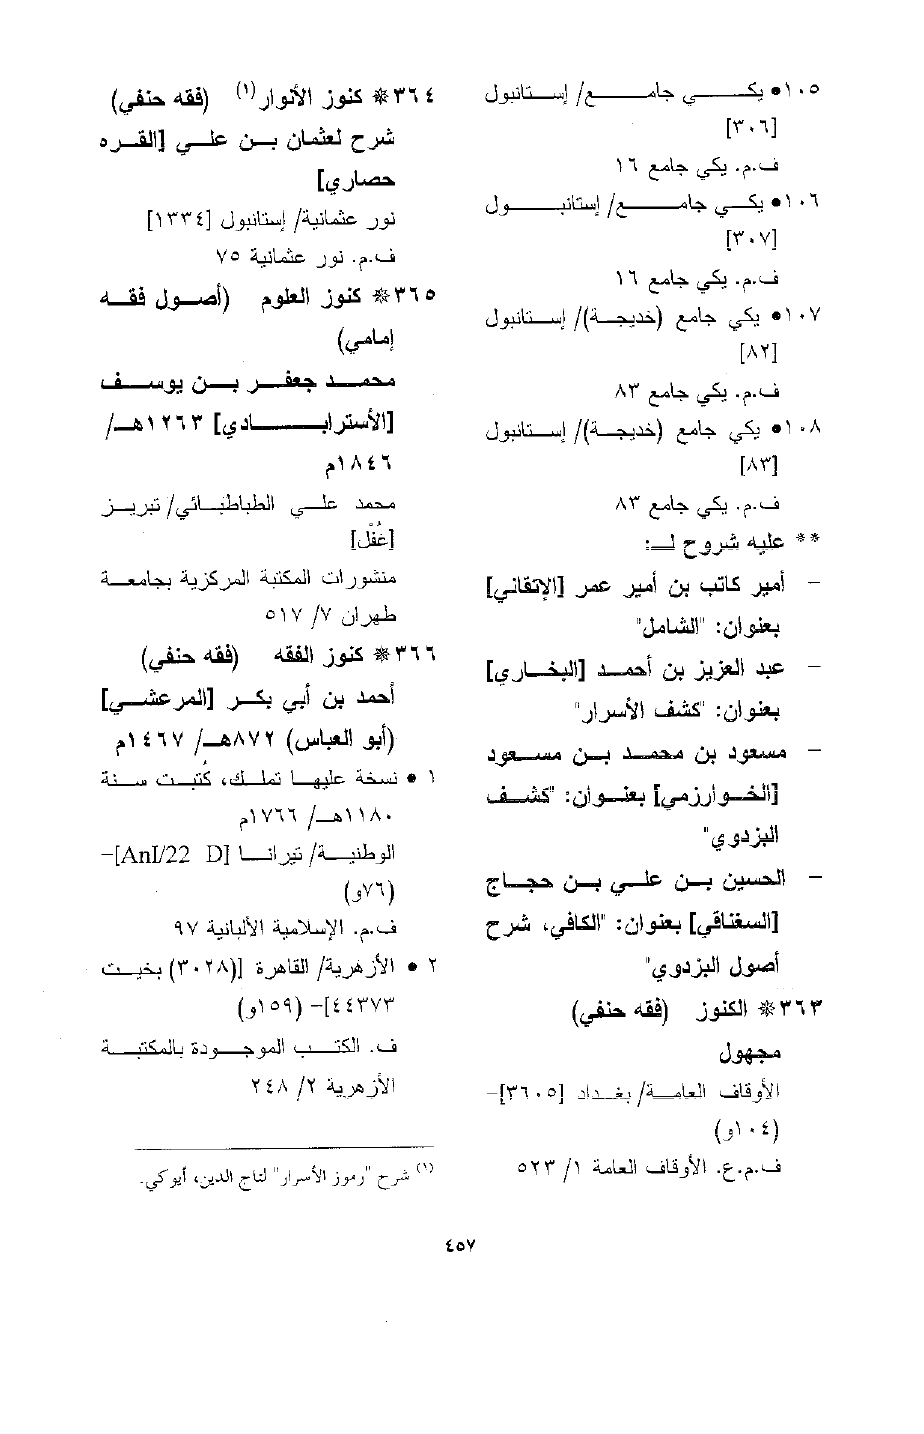 ١٠٥• يكي جامع/ إستانبول
[٣٠٦]
ف.م. يكي جامع ١٦
١٠٦• يكي جامع/ إستانبول
[٣٠٧]
ف.م. يكي جامع ١٦
١٠٧• يكي جامع (خديجة)/ إستانبول
[٨٢]
ف.م. يكي جامع ٨٣
١٠٨• يكي جامع (خديجة)/ إستانبول
[٨٣]
ف.م. يكي جامع ٨٣
** عليه شروح لـ:
– أمير كاتب بن أمير عمر [الإتقاني]
بعنوان: "الشامل"
– عبد العزيز بن أحمد [البخاري]
بعنوان: "كشف الأسرار"
– مسعود بن محمد بن مسعود
[الخوارزمي] بعنوان: "كشف
البزدوي"
– الحسين بن علي بن حجاج
[السغناقي] بعنوان: "الكافي، شرح
أصول البزدوي"
٣٦٣* الكنوز (فقه حنفي)
مجهول
الأوقاف العامة/ بغداد [٣٦٠٥]-
(١٠٤و)
ف.م.ع. الأوقاف العامة ١/ ٥٢٣
٣٦٤* كنوز الأنوار(١) (فقه حنفي)
شرح لعثمان بن علي [القره
حصاري]
نور عثمانية/ إستانبول [١٣٣٤]
ف.م. نور عثمانية ٧٥
٣٦٥* كنوز العلوم (أصول فقه
إمامي)
محمد جعفر بن يوسف
[الأسترابادي] ١٢٦٣هـ/
١٨٤٦م
محمد علي الطباطبائي/ تبريز
[غُفْل]
منشورات المكتبة المركزية بجامعة
طهران ٧/ ٥١٧
٣٦٦* كنوز الفقه (فقه حنفي)
أحمد بن أبي بكر [المرعشي]
(أبو العباس) ٨٧٢هـ/ ١٤٦٧م
١ • نسخة عليها تملك، كُتبت سنة
١١٨٠هـ/ ١٧٦٦م
الوطنية/ تيرانا [AnI/22 D]-
(٧٦و)
ف.م. الإسلامية الألبانية ٩٧
٢ • الأزهرية/ القاهرة [(٣٠٢٨) بخيت
٤٤٣٧٣]- (١٥٩و)
ف. الكتب الموجودة بالمكتبة
الأزهرية ٢/ ٢٤٨
(١) شرح "رموز الأسرار" لتاج الدين، أيوكي.
٤٥٧